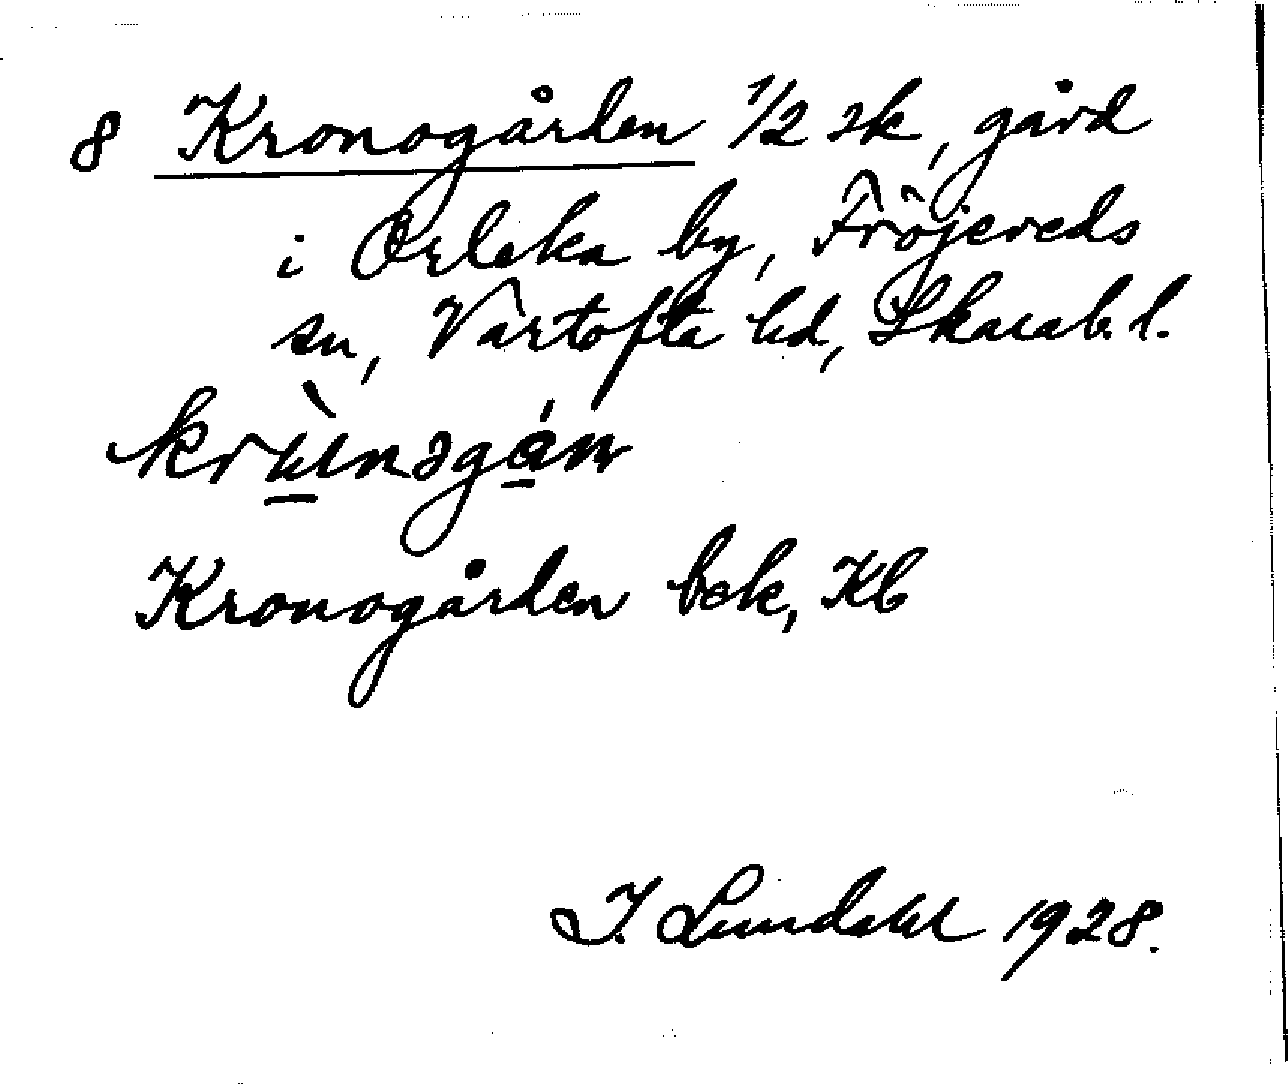 8 Kronogården 1/2 sk, gård
i Orleka by, Fröjereds
sn, Vartofta hd, Skarab. l.
Kronogården bek, Kb
I. Lundahl 1928.